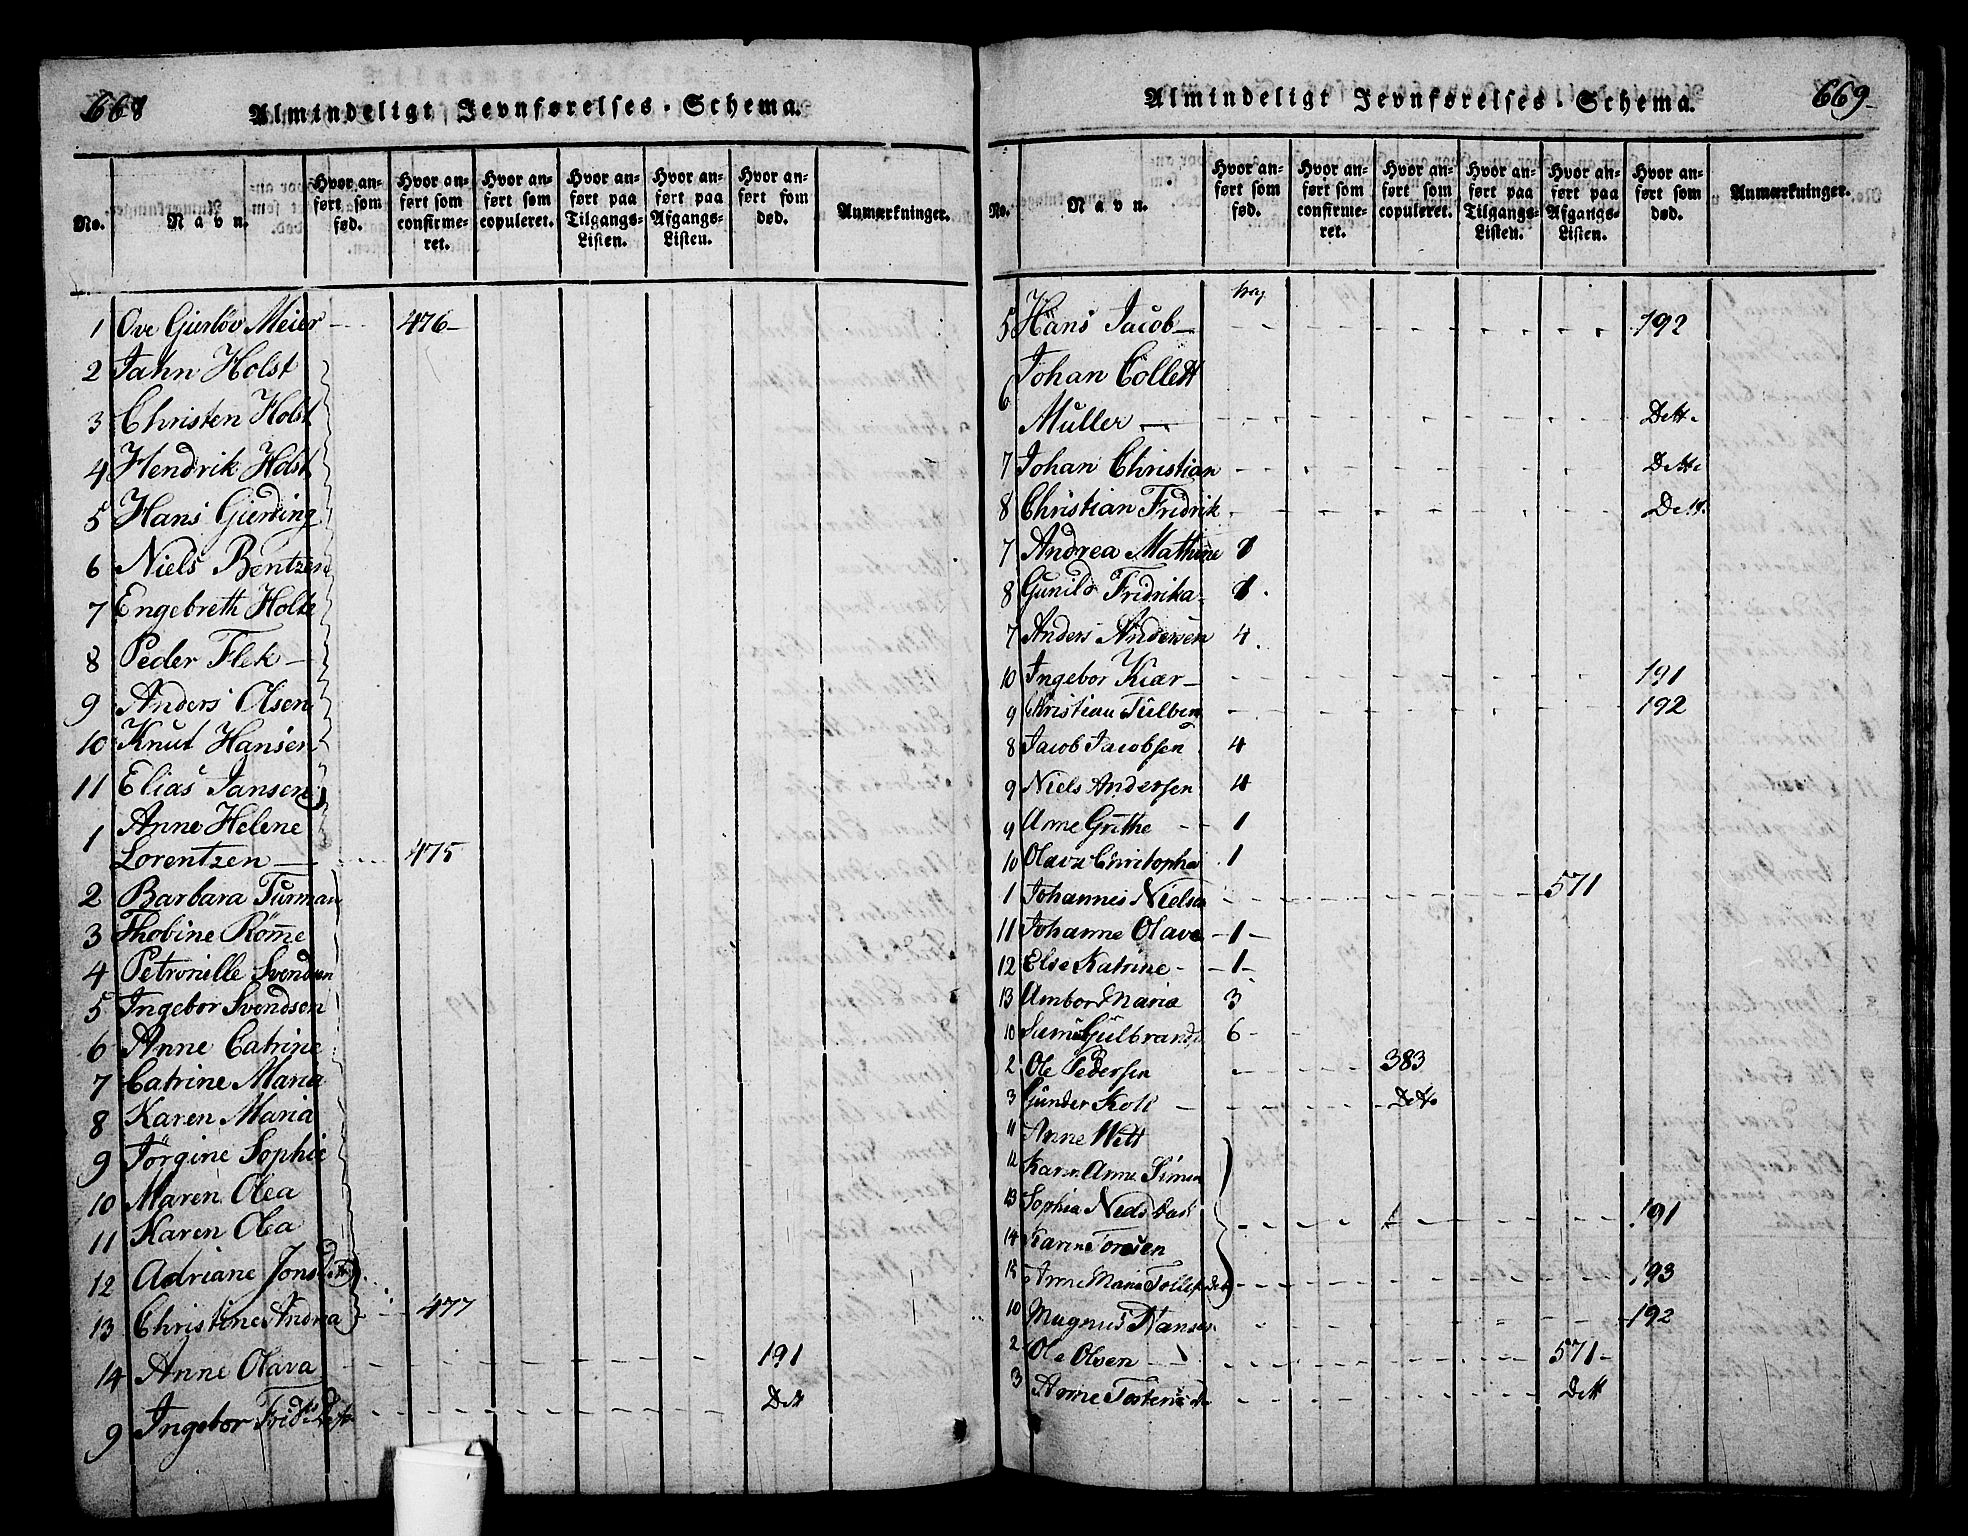 668
Almindeligt Jevnførelses-Schema.
No. Navn. Hvor anført som fød. Hvor anført som confirmeret. Hvor anført som copuleret. Hvor anført paa Tilgangs-Listen. Hvor anført paa Afgangs-Listen. Hvor anført som død. Anmærkninger.
1 Ove Gierløv Meier 476
2 Jahn Holst
3 Christen Holst
4 Hendrik Holst
5 Hans Gierding
6 Niels Bentzen
7 Engebreth Holte
8 Peder Flek
9 Anders Olsen
10 Knut Hansen
11 Elias Jansen
1 Anne Helene
Lorentzen 475
2 Barbara Turman
3 Thobine Røm̅e
4 Petronielle Svendsen
5 Ingebor Svendsen
6 Anne Catrine
7 Catrine Maria
8 Karen Maria
9 Jørgine Sophie
10 Maren Olea
11 Karen Olea
12 Adriane Jons
13 Christine Andrea 477
14 Anne Olava 191
9 Ingebor Frids Dett
669
Almindeligt Jevnførelses-Schema.
No. Navn. Hvor anført som fød. Hvor anført som confirmeret. Hvor anført som copuleret. Hvor anført paa Tilgangs-Listen. Hvor anført paa Afgangs-Listen. Hvor anført som død. Anmærkninger.
5 Hans Jacob 192
Johan Collett
6 Muller Dett
7 Johan Christian Dett
8 Christian Fridrik Dett.
7 Andrea Mathine 1
8 Gunild Fridrika 1
7 Anders Andersen 4
10 Ingebor Kiær 191
9 Christian 192
8 Jacob Jacobsen 4
9 Niels Andersen 4
9 Anne Grethe 1
10 Olava Christopha 1
1 Johannes Nielsen 571
11 Johanne Olava 1
12 Else Katrine 1
13 Ambor Maria 3
10 Gulbrands 6
2 Ole Pedersen 383
3 Gunder Dett
11 Anne Witt
12 Karen Anne Simen
13 Sophia Niels Datt 191
14 Karen Toresen
15 Anne Maria 193
10 Magnus Hansen 192
2 Ole Olsen 571
3 Anne Dett